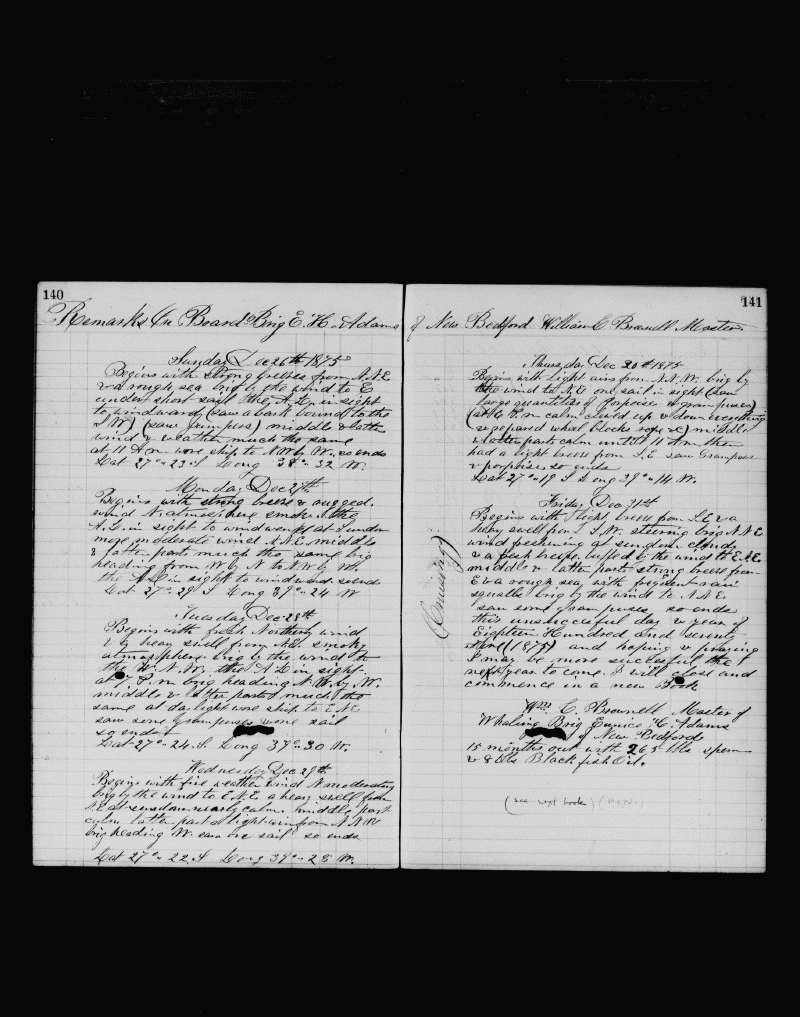 140
Remarks On Board Brig E. H. Adams
Sunday Dec 26th 1875
Begins with strong breezes from N.N.E.
& a rough sea brig by the wind to E
under short sail the A. L. in sight
to windward (saw a bark bound to the
S W) (saw jumpers) middle & latter
wind & weather much the same
at 11 A m wore ship to N W by W. so ends
Lat 27° 23 S Long 38° 32 W.
Monday Dec 27th
Begins with strong breeze & rugged.
wind N. atmosphere smoky the
A. L. in sight to windward at sundown
more moderate wind N.N.E. middle
& latter part much the same brig
heading from W by N to N.W by W.
the A L in sight to windward so ends
Lat 27° 29 S Long 39° 24 W
Tuesday Dec 28th
Begins with fresh Northerly wind
& a heavy swell from N.E. smoky
atmosphere brig by the wind to
the W.N.W. the A L in sight
at 7 P. m brig heading N.W. by W.
middle & latter parts much the
same at daylight wore ship to E N E
saw some grampuses & one sail
so ends
Lat 27° 24 S Long 39° 30 W.
Wednesday Dec 29th
Begins with fine weather wind N moderating
brig by the wind to E N E a heavy swell from
N.E. at sundown nearly calm middle part
calm latter part a light air from N.N.W
brig heading W. saw one sail so ends
Lat 27° 22 S Long 39° 28 W.
141
of New Bedford William C Brownell Master
Thursday Dec 30th 1875
Begins with light airs from N.N.W. brig by
the wind to N.E one sail in sight (saw
large quantities of Porpoises & grampuses)
(at 4 P.m calm up & down everything
& repaired wheel blocks rope &c) middle
& latter parts calm until 11 A m then
had a light breeze from S.E saw Grampuses
& porpoises so ends
Lat 27° 19 S Long 39° 14 W.
Friday Dec 31st
Begins with light breeze from S.E & a
heavy swell from S.W. steering brig N N E
wind freshening at sundown cloudy
& a fresh breeze luffed by the wind to E.N.E.
middle & latter parts strong breeze from
E & a rough sea with frequent rain
squalls brig by the wind to N.N.E.
saw some grampuses so ends
this unsuccessful day & year of
Eighteen Hundred and seventy
five (1875) and hoping & praying
I may be more successful the
next year to come. I will close and
commence in a new Book
(Cruising)
Wm C. Brownell Master of
Whaling Brig Eunice H. Adams
of New Bedford
15 months out with 265 bbls sperm
& 8 bbls Blackfish Oil.
(see next book)